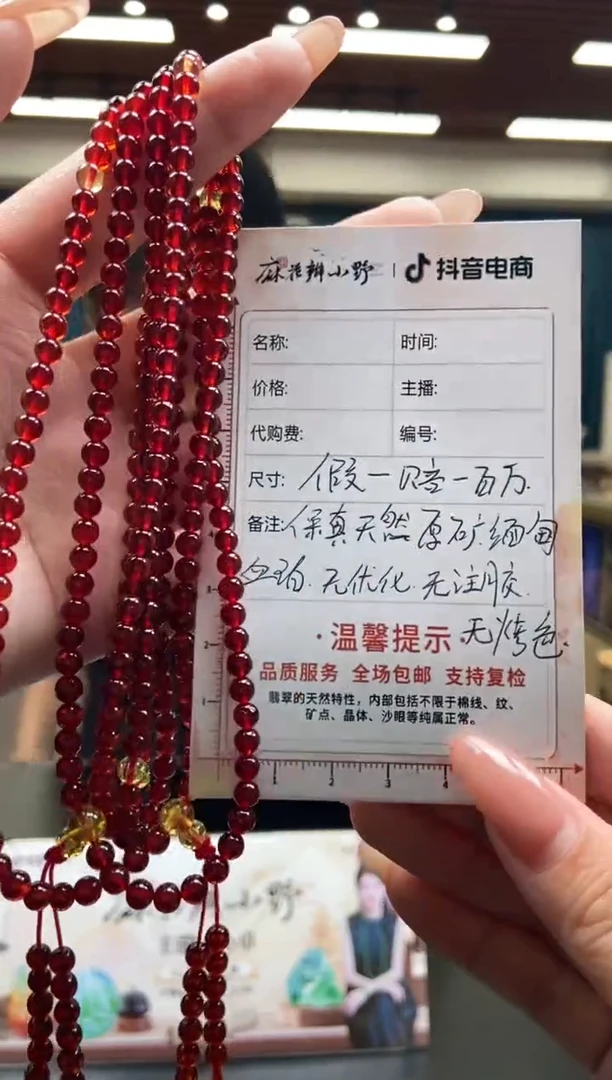 麻花辫小野 | 抖音电商
名称: 时间:
价格: 主播:
代购费: 编号:
尺寸: 假一赔一百万.
备注: 保真天然原矿.缅甸
血珀.无优化.无注胶.
无烤色.
·温馨提示·
品质服务 全场包邮 支持复检
翡翠的天然特性，内部包括不限于棉线、纹、
矿点、晶体、沙眼等纯属正常。
1 2 3 4